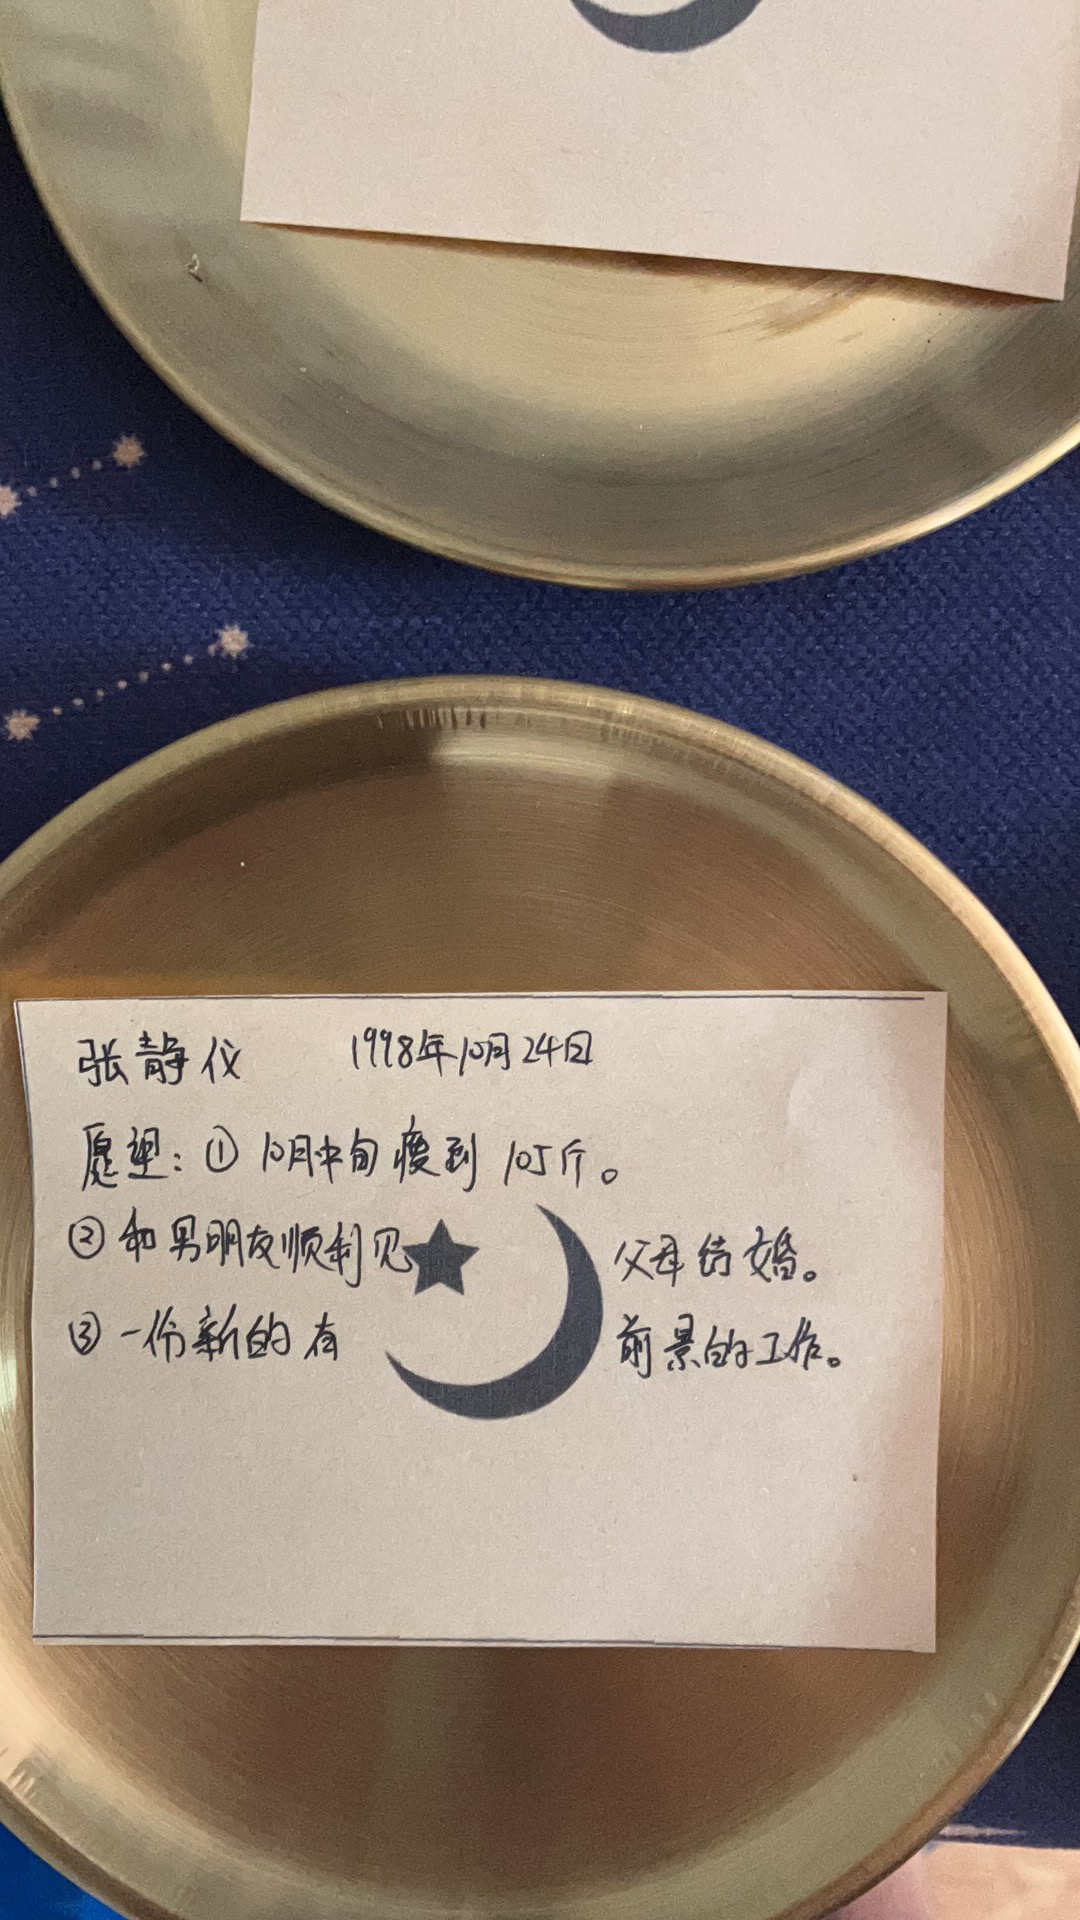 张静仪 1998年10月24日
愿望：① 10月中旬瘦到 105斤。
② 和男朋友顺利见父母结婚。
③ 一份新的有前景的工作。